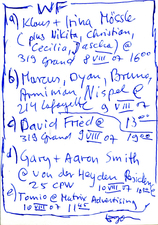 WF
a) Klaus + Irina Möckle
( plus Nikita, Christian,
Cecilia, Sascha) @
319 Grand 8 VIII 07 1600
b) Marcus, Dyan, Bruno,
Nispel @
214 Lafayette 9 VIII 07
c) David Fried @ 1300
319 Grand 9 VIII 07 1900
d) Gary + Aaron Smith
@ von der Heyden
25 CPW 10 VIII 07
e) Tomio @ Matrix Advertising
10 VIII 07 1145